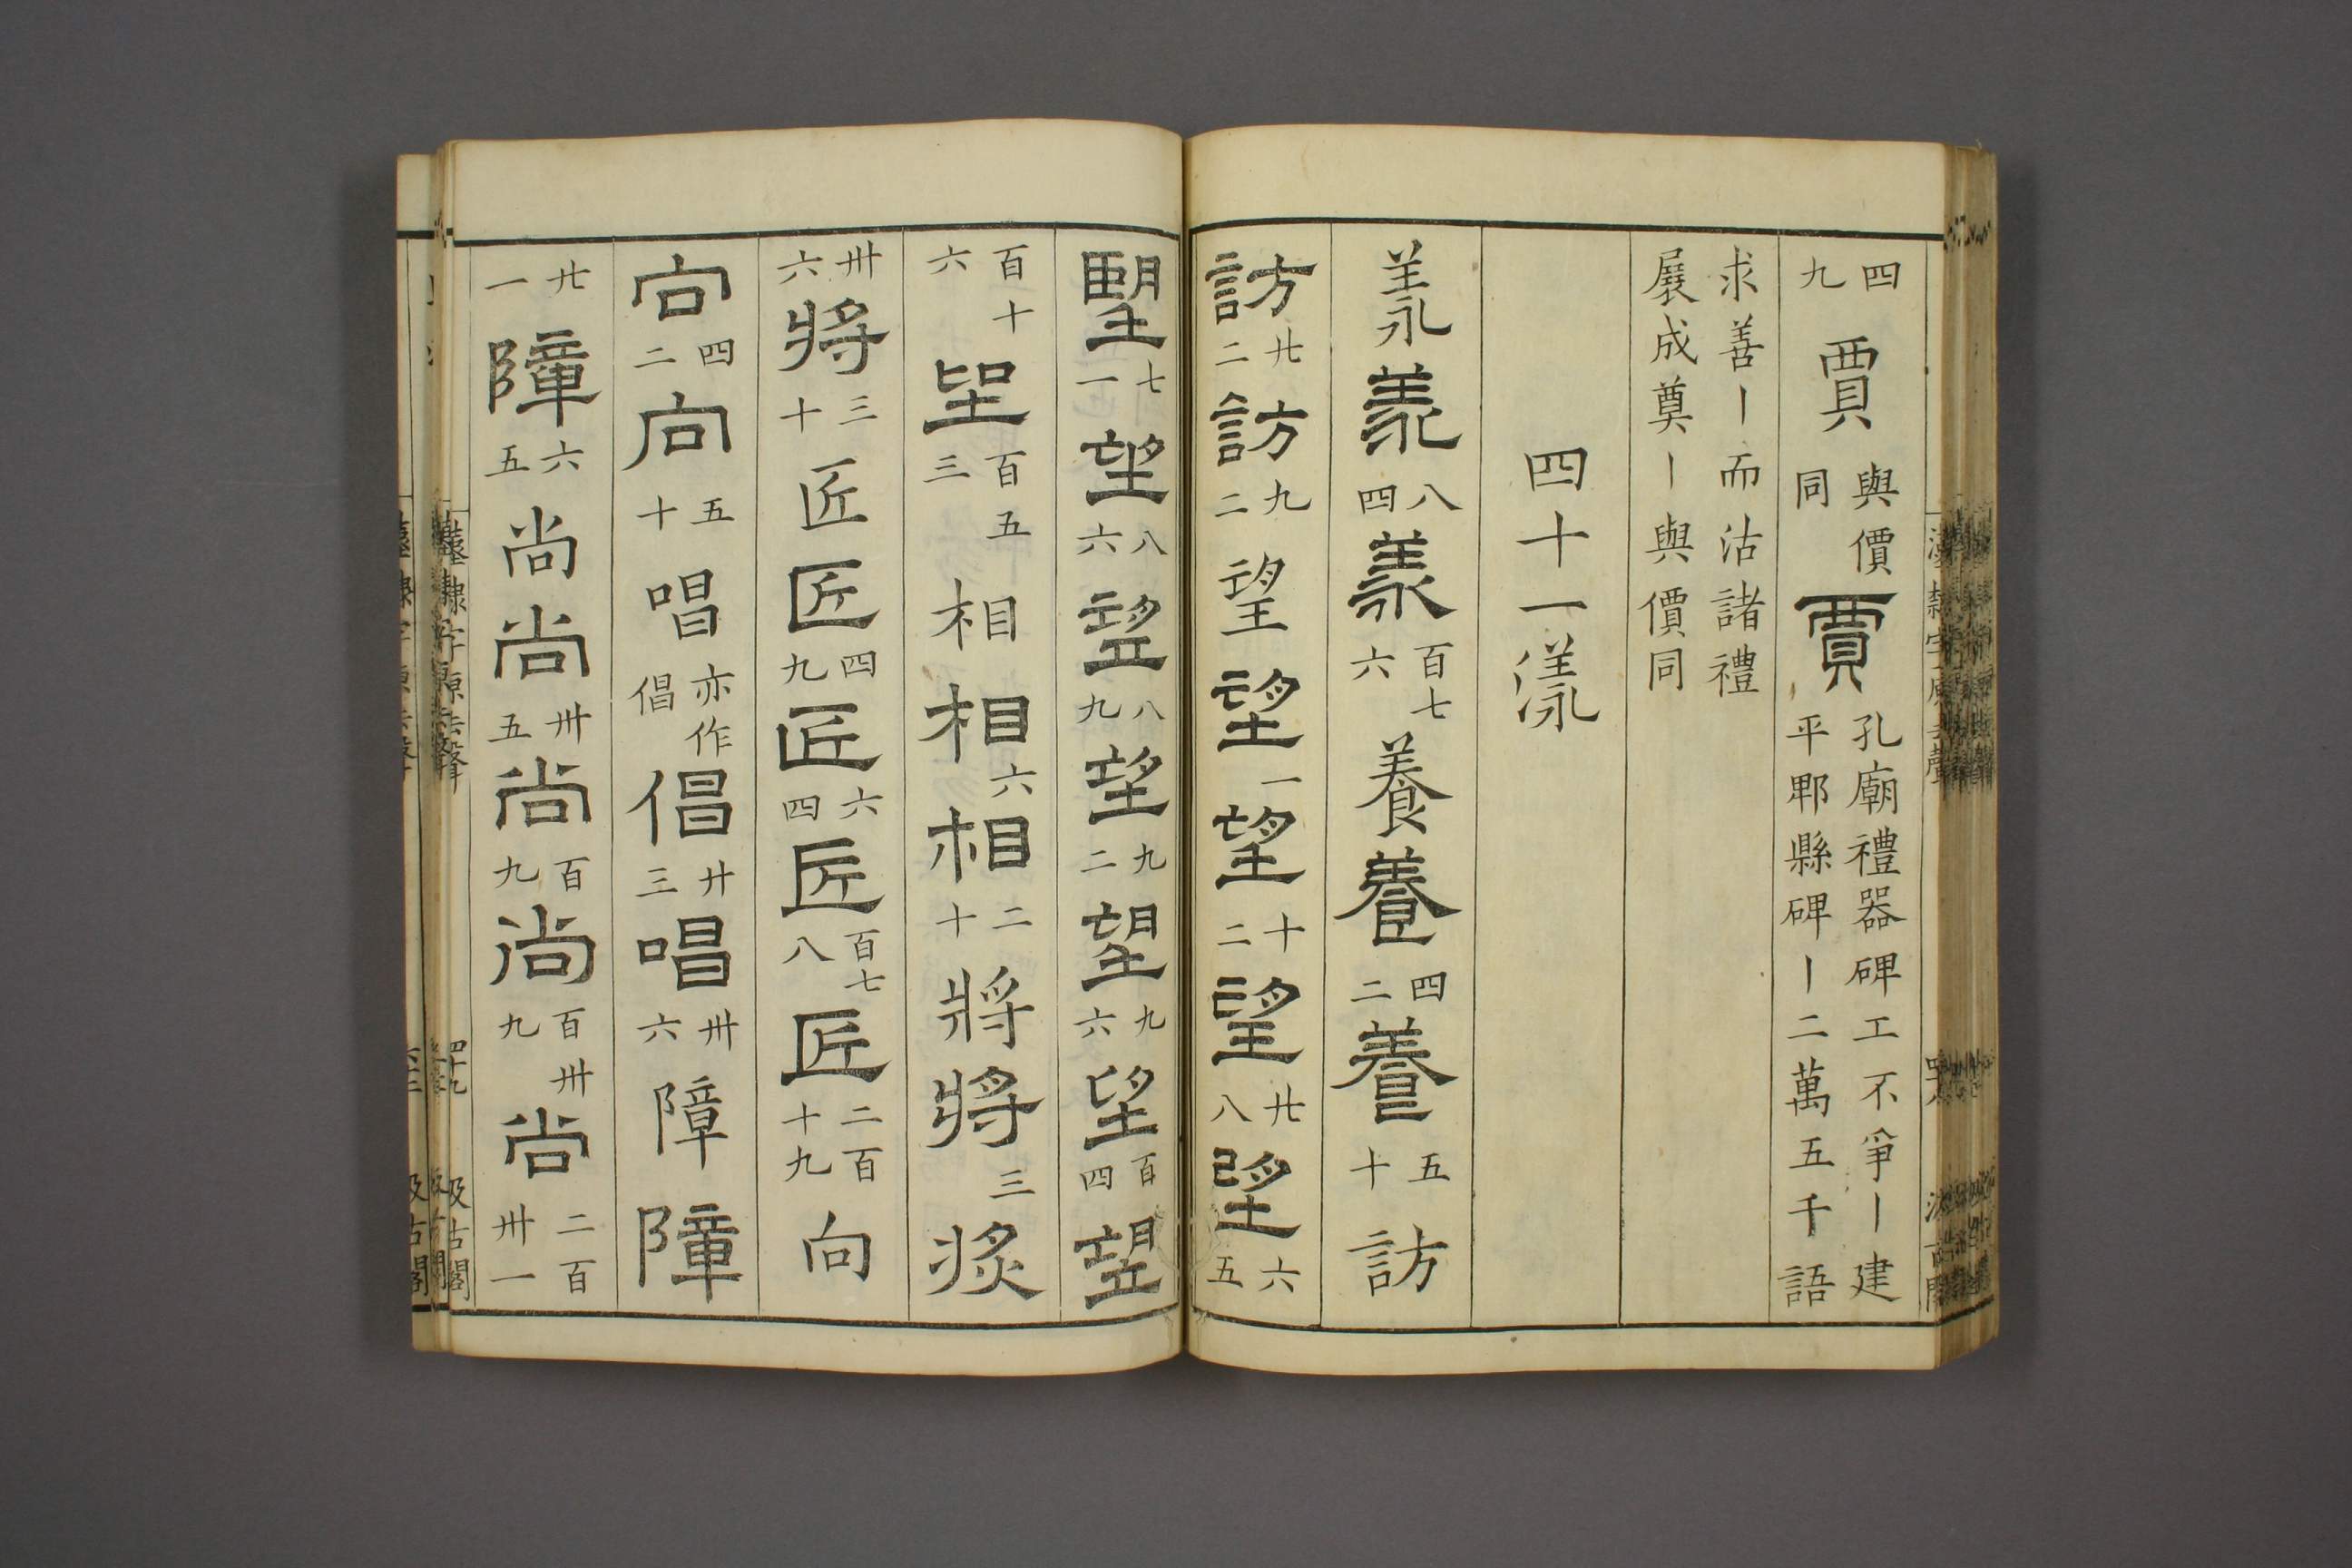 四九賈與價同賈孔廟禮器碑工不爭丨建平郫縣碑丨二萬五千語
求善丨而沽諸禮展成奠丨與價同
四十一漾
羕羕八四羕百七六養養四二養五十訪
訪廿二訪九二望望一望十二望廿八望六五
望七一望八六望八九望九二望九六望百四望
百十六望百五三相相六相二十將將三將
卅六將三十匠匠四九匠六四匠百七八匠二百十九向
向四二向五十唱亦作倡倡廿三唱卅六障障
廿一障六五尚尚卅五尚百九尚百卅九尚二百卅一
漢隸字源去聲
四十九
汲古閣